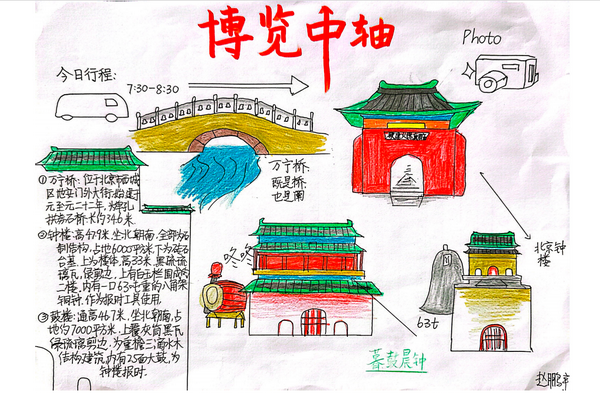 博览中轴
Photo
今日行程:
7:30-8:30
万宁桥:
既是桥
也是闸
①万宁桥:位于北京市西城
区地安门外大街,始建于
元至元二十二年,为单孔
拱券石桥长约34.6米.
②钟楼:高47.9米.坐北朝南,全部为石
制结构,占地6000平方米.下为砖石
台基.上为楼体,高33米.黑琉璃
瓦,绿剪边,上有白玉栏围成
二楼.内有一口63吨重的八角架
铜钟,作为报时工具使用.
③鼓楼:通高46.7米.坐北朝南,占
地约7000平方米.上覆灰筒黑瓦
绿琉璃剪边,为重檐三滴水木
结构建筑,内有25面大鼓,为
钟楼报时.
咚咚
北京钟
楼
63t
暮鼓晨钟